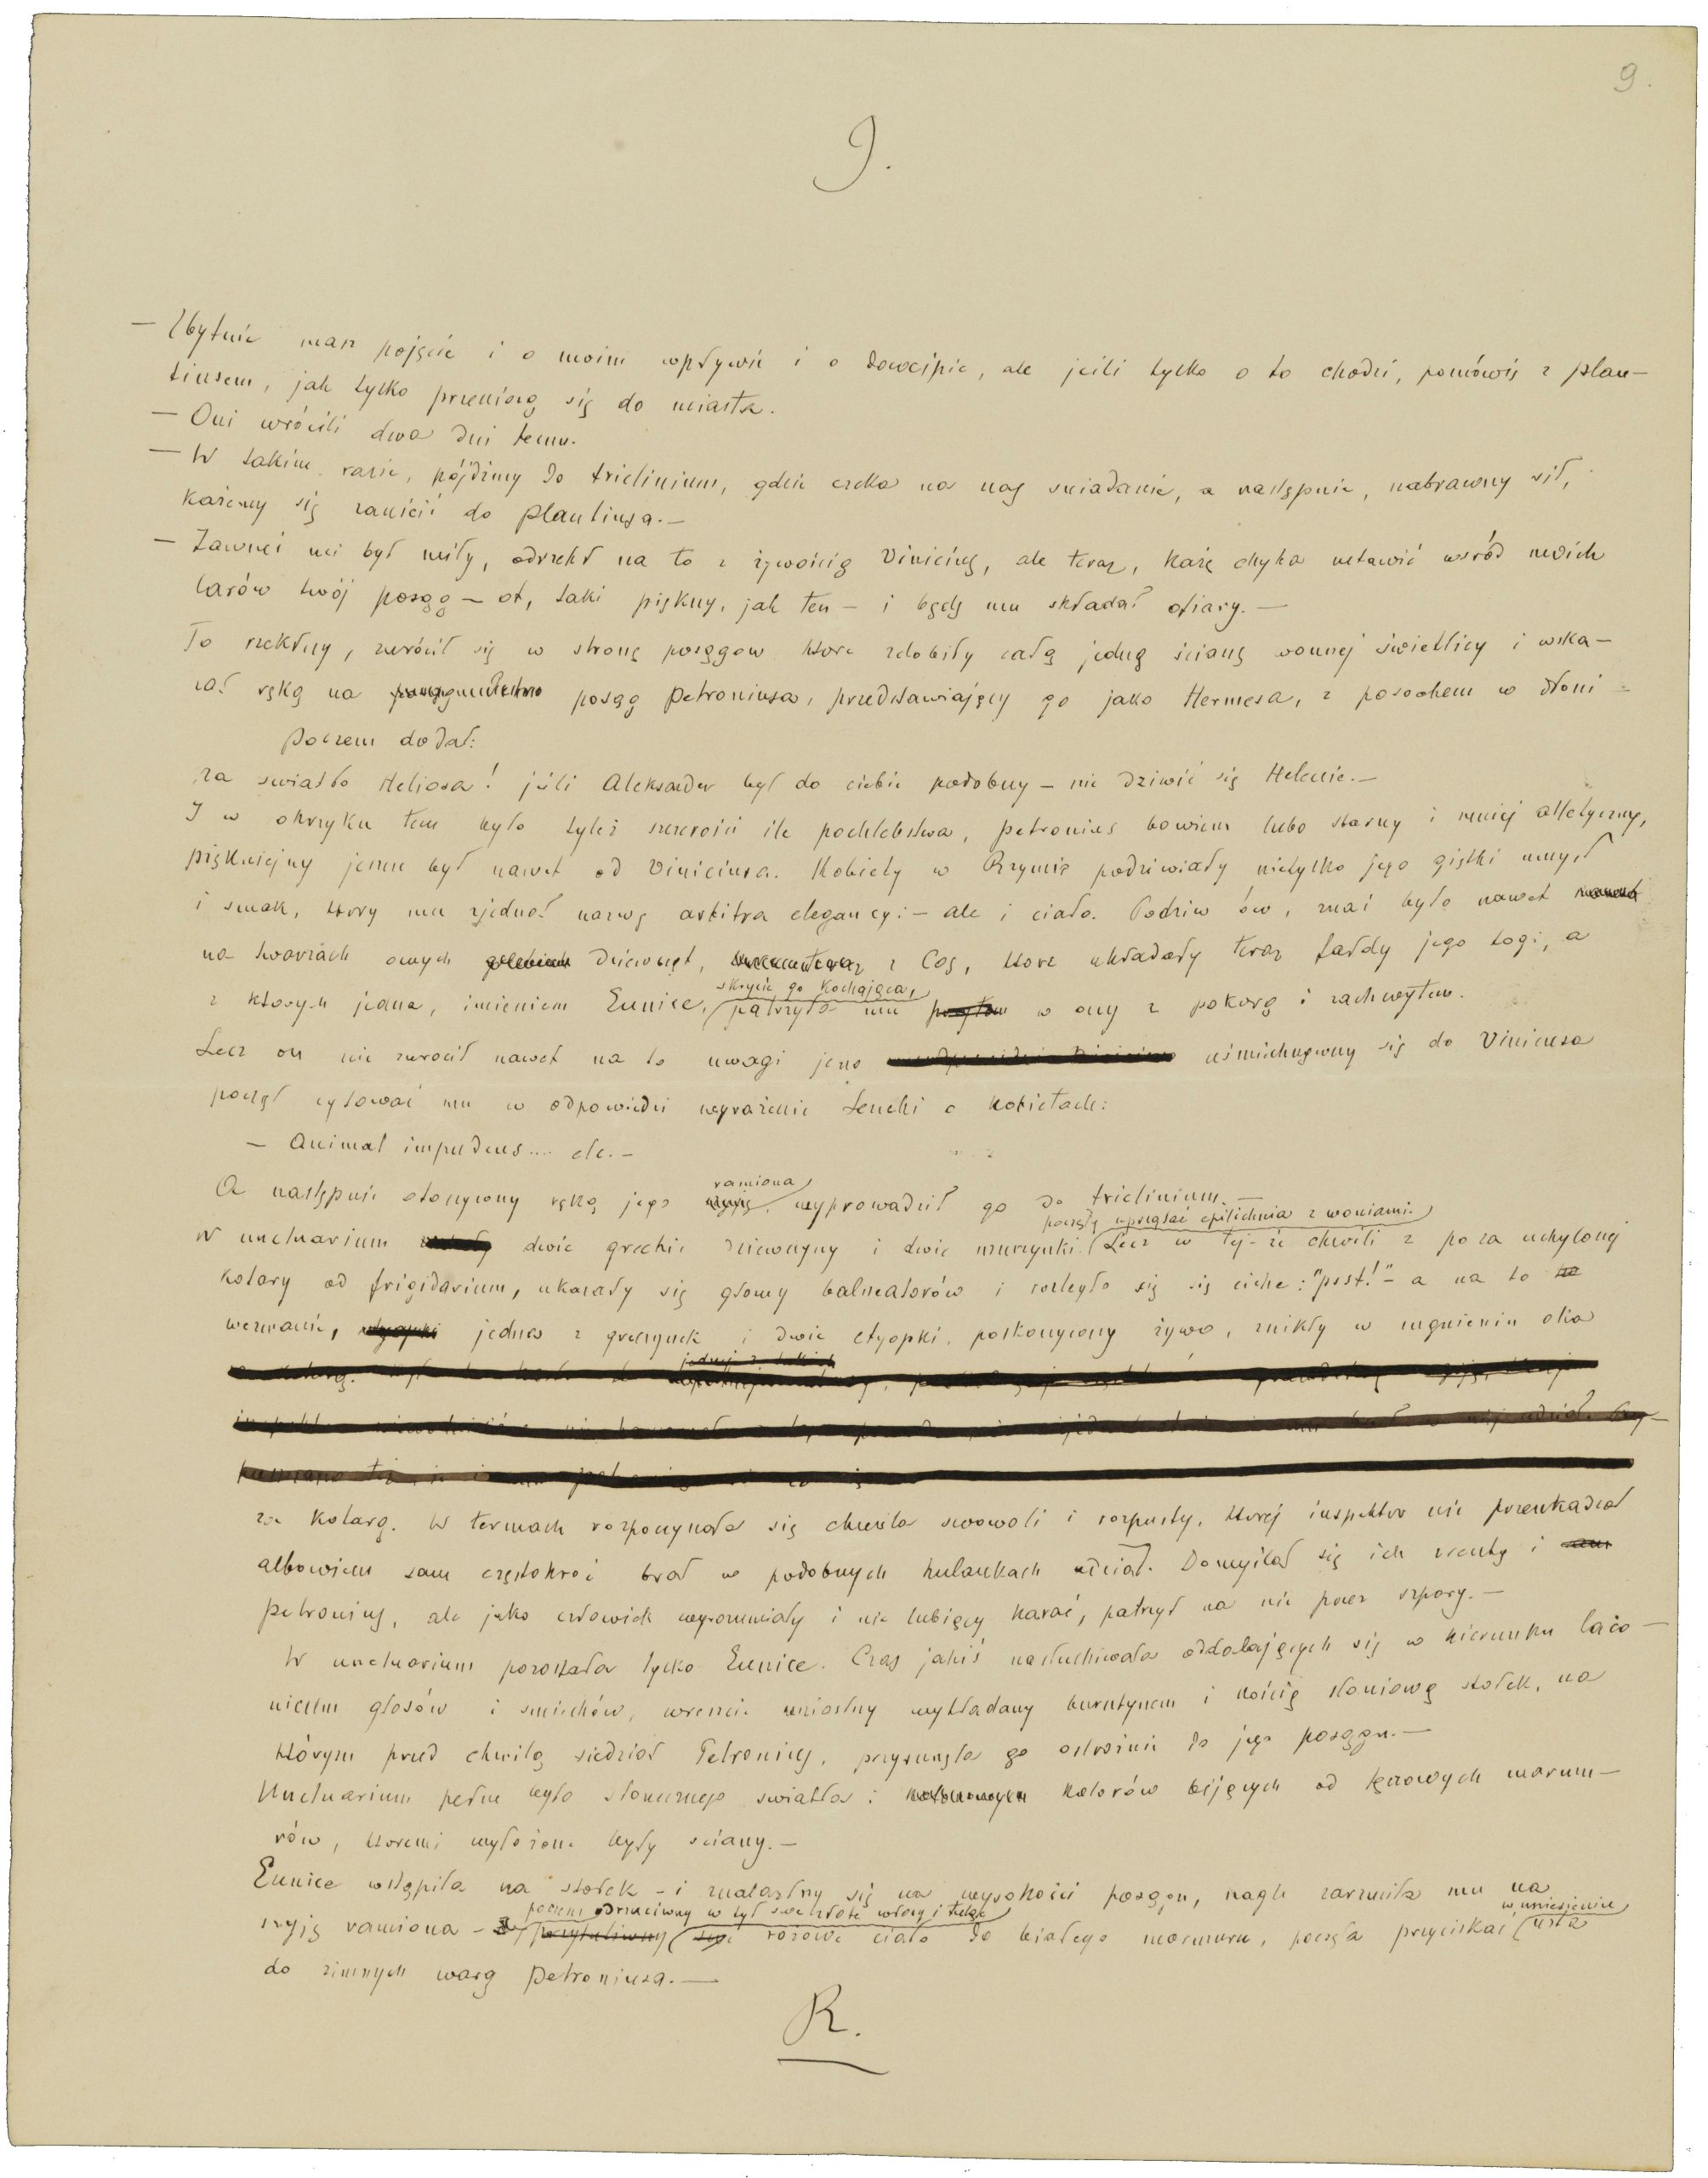 9.
9.
— Zbytnie masz pojęcie i o moim wpływie i o dowcipie, ale jeśli tylko o to chodzi, pomówię z Plau–
tiusem, jak tylko przeniosą się do miasta.
— Oni wrócili dwa dni temu.
— W takim razie, pójdźmy do triclinium, gdzie czeka na nas sniadanie, a następnie, nabrawszy sił,
każemy się zanieść do Plautiusa.—
— Zawsześ mi był miły, odrzekł na to z żywością Vinicius, ale teraz, każę chyba ustawić wsród moich
larów twój posąg — ot, taki piękny, jak ten — i będę mu składał ofiary.—
To rzekłszy, zwrócił się w stronę posągów ktore zdobiły całą jedną ścianę wonnej świetlicy i wska–
zał ręką na posąg Petroniusa, przedstawiający go jako Hermesa, z posochem w dłoni
Poczem dodał:
na swiatło Heliosa! jeśli Aleksander był do ciebie podobny — nie dziwić się Helenie.—
I w okrzyku tem było tyleż szczerości ile pochlebstwa, Petronius bowiem lubo starszy i mniej atletyczny,
piękniejszy jeszcze był nawet od Viniciusa. Kobiety w Rzymie podziwiały nietylko jego giętki umysł
i smak, ktory mu zjednał nazwę arbitra elegancyi — ale i ciało. Podziw ów, znać było nawet
na twarzach owych dziewcząt, z Cos, ktore układały teraz fałdy jego togi, a
z ktorych jedna, imieniem Eunice, skrycie go kochająca, patrzyła mu w oczy z pokorą i zachwytem.
Lecz on nie zwrocił nawet na to uwagi jeno uśmiechnąwszy się do Viniciusa
począł cytować mu w odpowiedzi wyrażenie Seneki o kobietach:
— Animal impudens.... etc.—
A następnie otoczywszy ręką jego ramiona wyprowadził go do triclinium.—
W unctuarium dwie greckie dziewczyny i dwie murzynki poczęły uprzątać epilichnia z woniami. Lecz w tej-że chwili z po za uchylonej
kotary od frigidarium, ukazały się głowy balneatorów i rozległo się się ciche: "psst!" — a na to
wezwanie, jedna z greczynek i dwie etyopki, poskoczywszy żywo, znikły w mgnieniu oka
za kotarą. W termach rozpoczynała się chwila swawoli i rozpusty, ktorej inspektor nie przeszkadzał
albowiem sam częstokroć brał w podobnych hulankach udział. Domyślał się ich zresztą i
Petronius, ale jako człowiek wyrozumiały i nie lubiący karać, patrzył na nie przez szpary.—
W unctuarium pozostała tylko Eunice. Czas jakiś nasłuchiwała oddalających się w kierunku laco–
nicum głosów i smiechów, wreszcie uniosłszy wykładany bursztynem i kością słoniową stołek, na
którym przed chwilą siedział Petronius, przysunęła go ostrożnie do jego posągu.—
Unctuarium pełne było słonecznego swiatła i kolorów bijących od tęczowych marmu–
rów, ktoremi wyłożone były sciany.—
Eunice wstąpiła na stołek — i znalazłszy się na wysokości posągu, nagle zarzuciła mu na
szyję ramiona — poczem odrzuciwszy w tył swe złote włosy i tuląc różowe ciało do białego marmuru, poczęła przyciskać w uniesieniu usta
do zimnych warg Petroniusa.—
R.